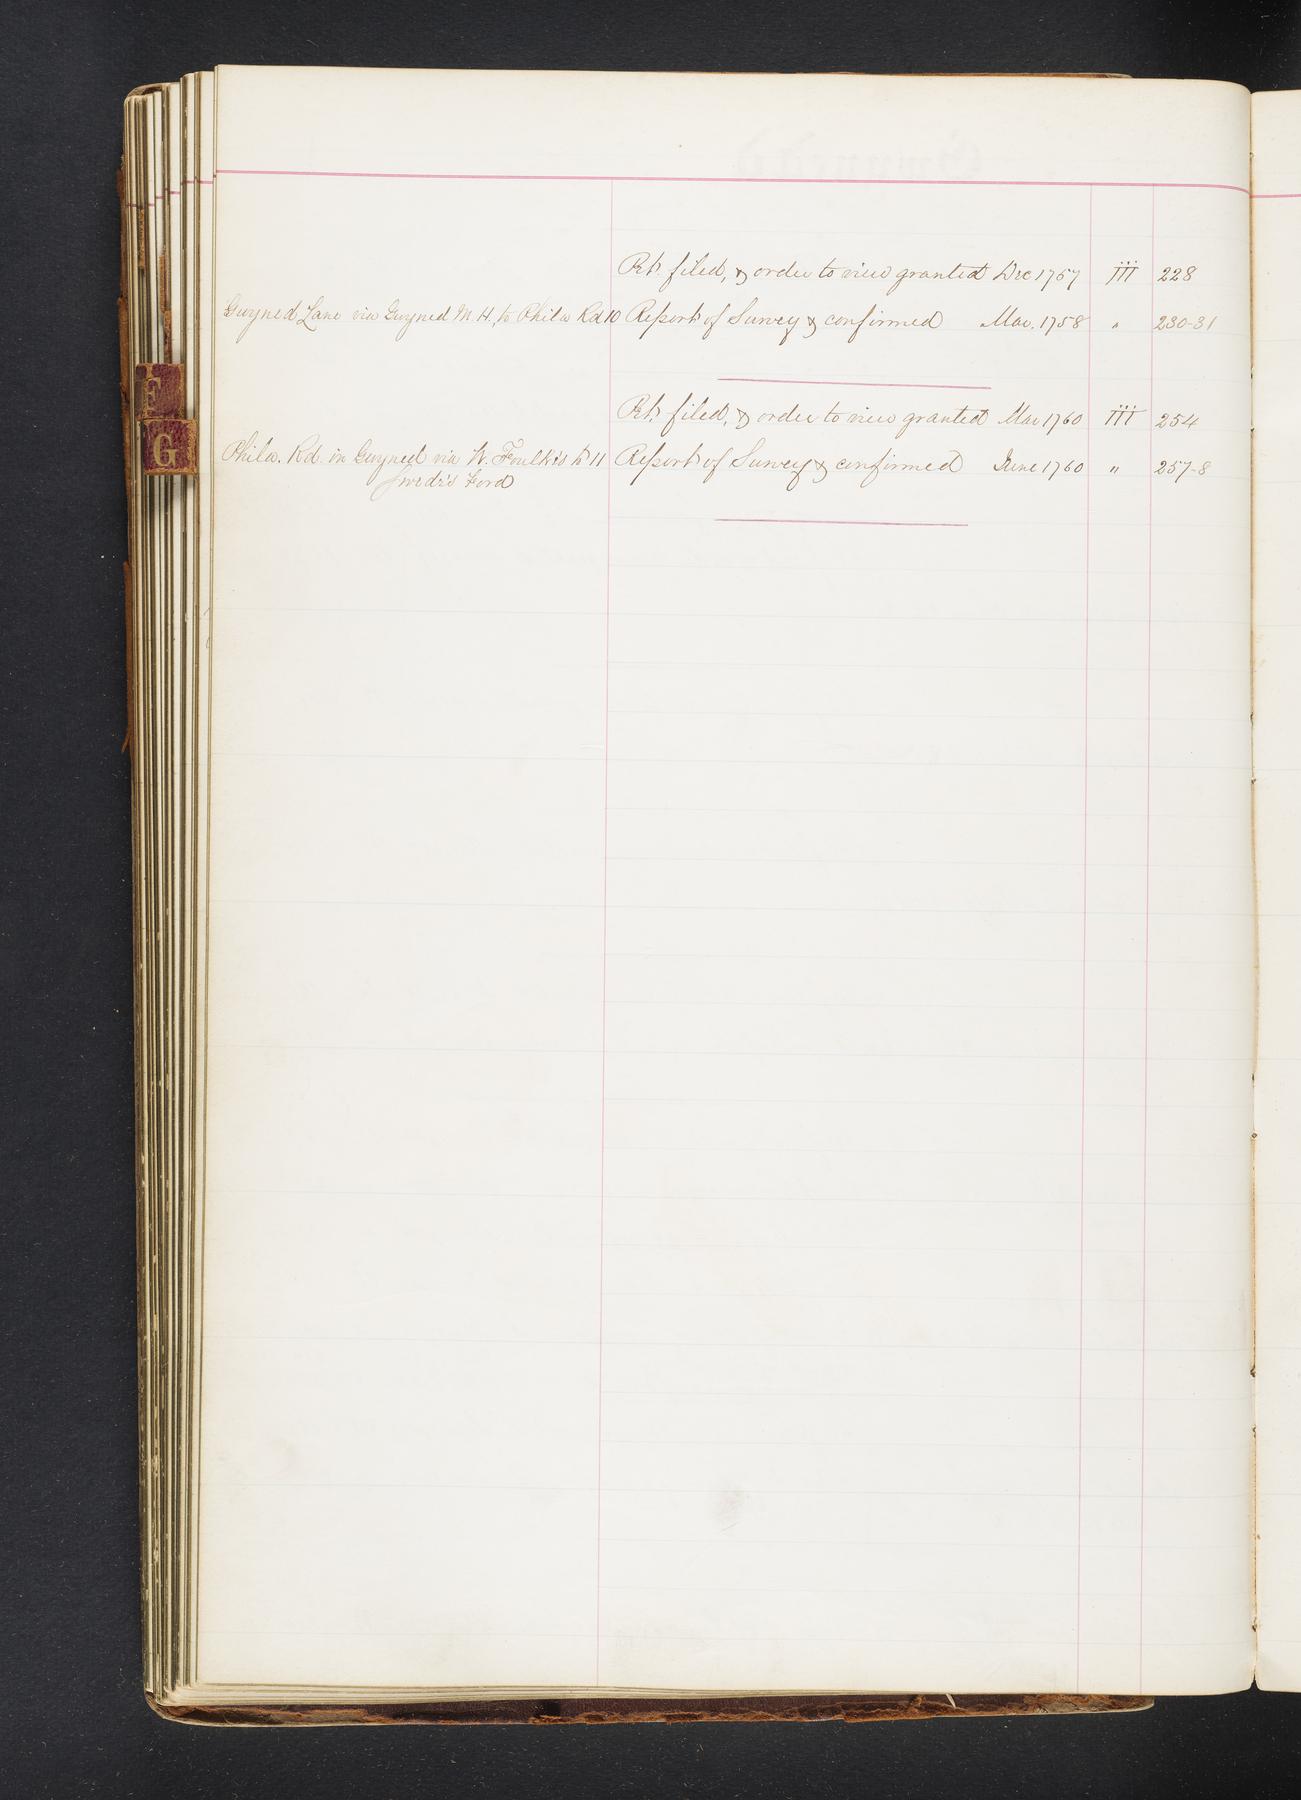 Pet. filed, & order to view granted Dec 1757 iii 228
Gwyned Lane via Gwyned M. H, to Phila Rd 10 Report of Survey & confirmed Mar. 1758 " 230-31
Pet. filed, & order to view granted Mar 1760 iii 254
Phila. Rd in Gwyned via W. Foulke's to 11 Report of Survey & confirmed June 1760 " 257-8
Swede's Ford
F
G